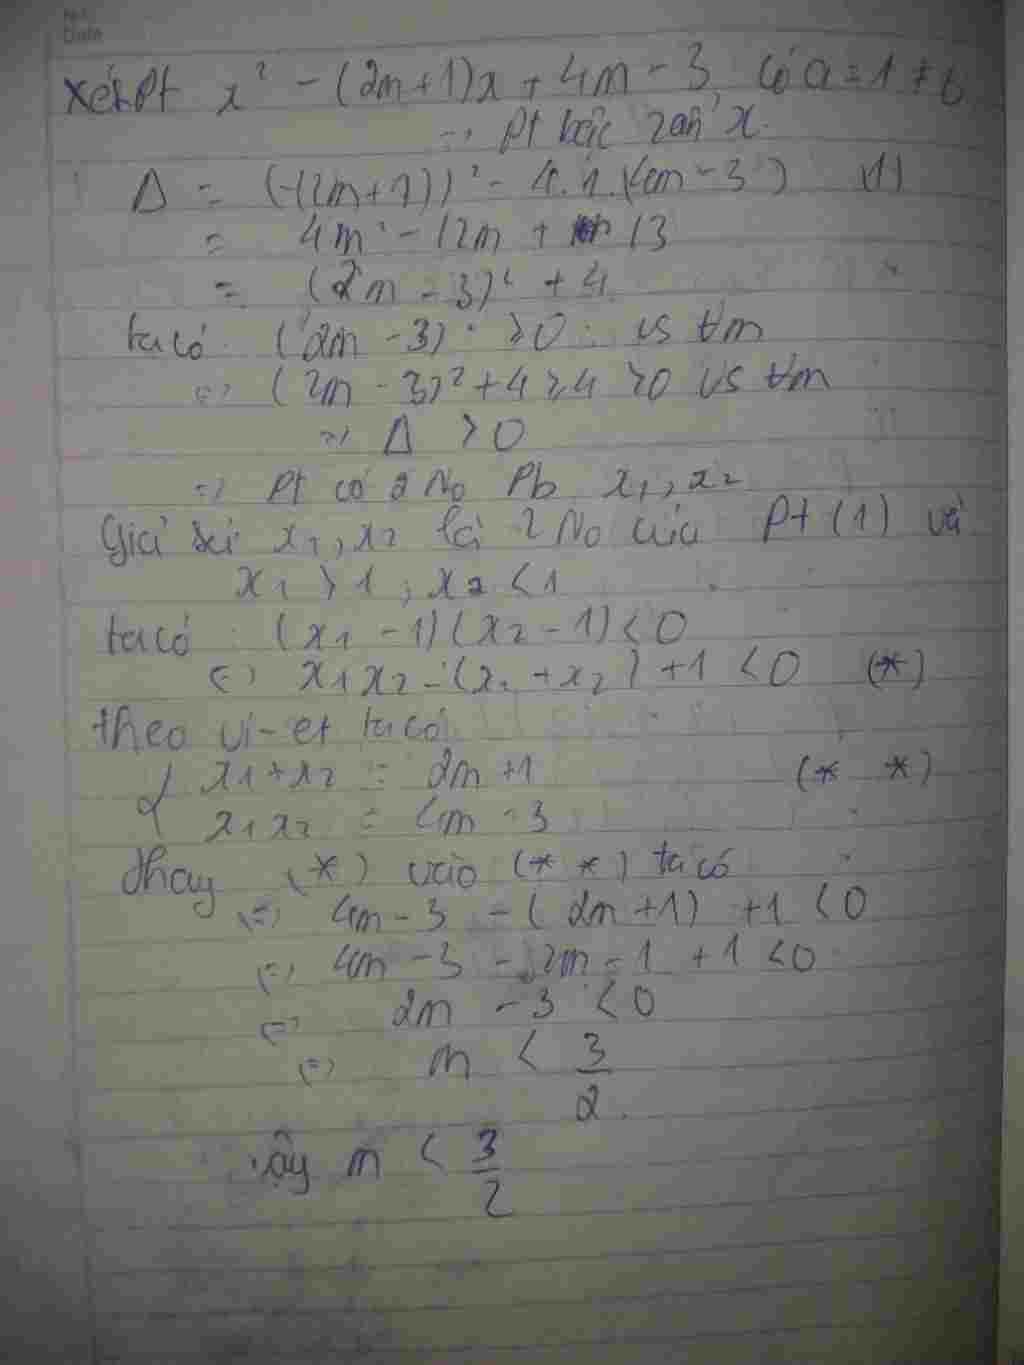 No.
Date
Xét Pt x² - (2m+1)x + 4m - 3 có a = 1 ≠ 0
=> Pt bậc 2 ẩn x.
Δ = (-(2m+1))² - 4.1.(4m-3) (1)
= 4m² - 12m + 13
= (2m - 3)² + 4
ta có (2m - 3)² ≥ 0 vs ∀m
=> (2m - 3)² + 4 ≥ 4 > 0 vs ∀m
=> Δ > 0
=> Pt có 2 No Pb x₁, x₂
Giả sử x₁, x₂ là 2 No của Pt (1) và
x₁ > 1, x₂ < 1
ta có (x₁ - 1)(x₂ - 1) < 0
(=) x₁x₂ - (x₁ + x₂) + 1 < 0 (*)
theo vi-et ta có
{ x₁ + x₂ = 2m + 1 (* *)
x₁x₂ = 4m - 3
thay (*) vào (* *) ta có
(=) 4m - 3 - (2m + 1) + 1 < 0
(=) 4m - 3 - 2m - 1 + 1 < 0
(=) 2m - 3 < 0
(=) m < 3/2
Vậy m < 3/2